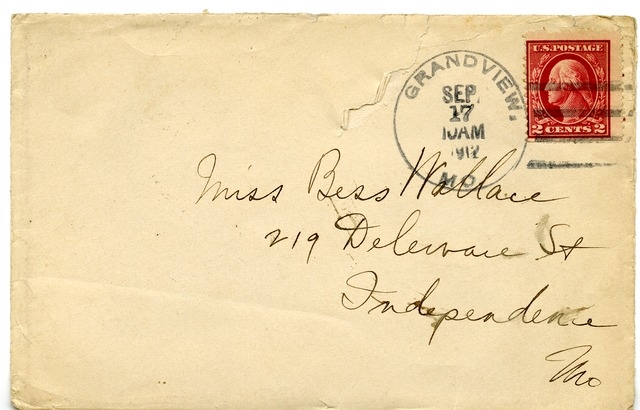 GRANDVIEW.
SEP.
17
10AM
1912
MO.
U.S. POSTAGE
2 CENTS 2
Miss Bess Wallace
219 Deleware St
Independence
Mo